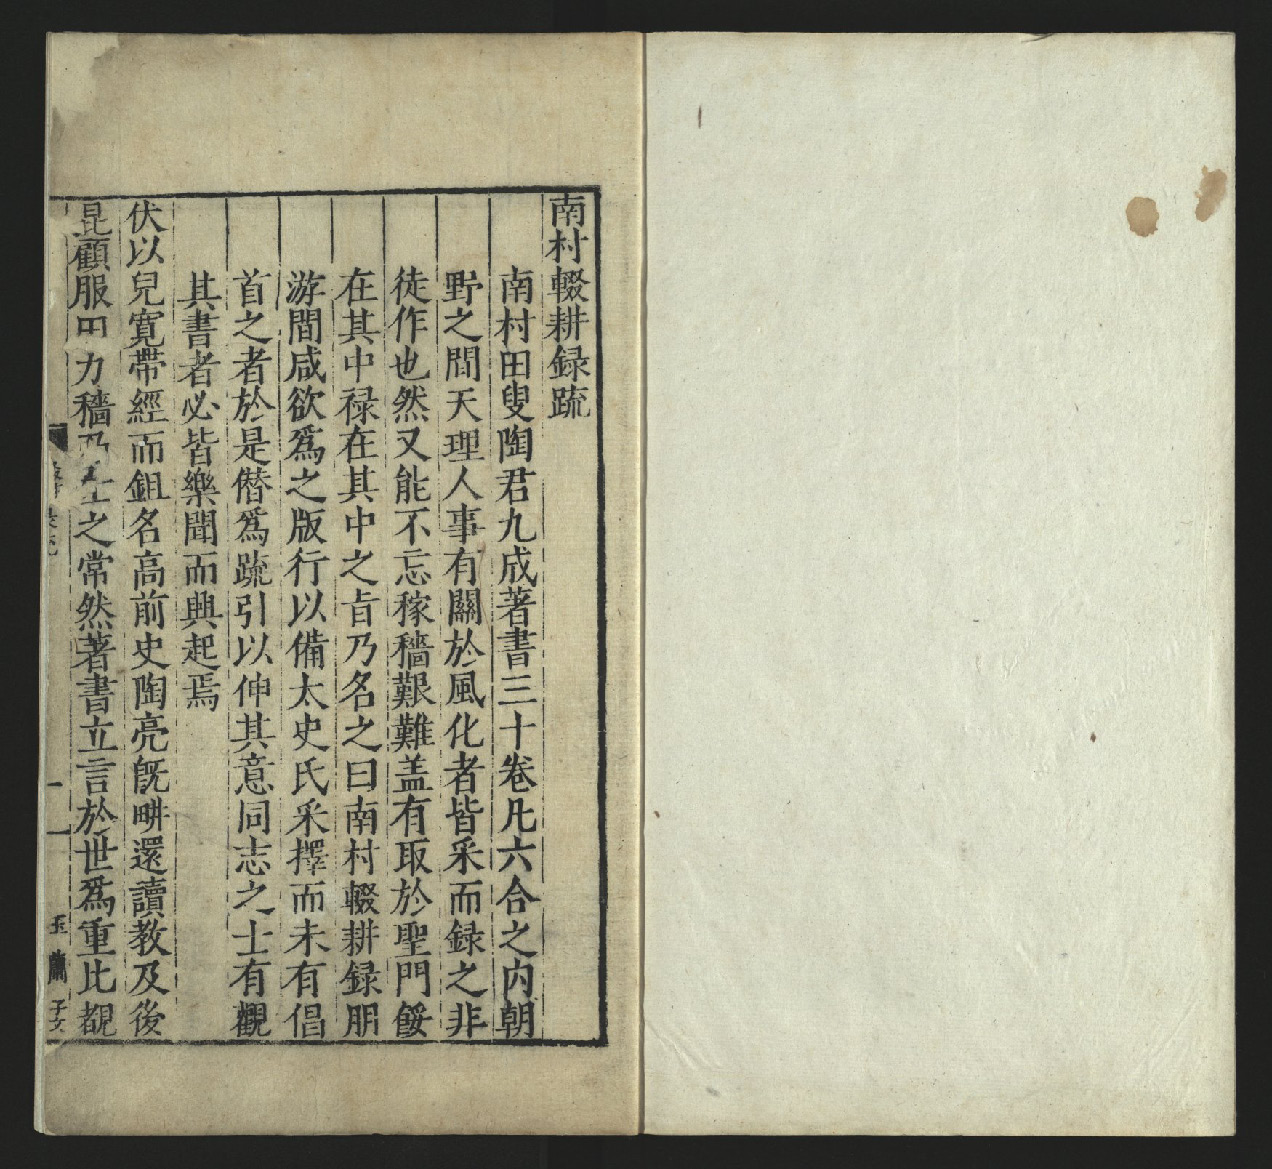 南村輟耕録疏
南村田叟陶君九成著書三十卷凡六合之内朝
野之間天理人事有關於風化者皆采而録之非
徒作也然又能不忘稼穡艱難盖有取於聖門餒
在其中禄在其中之㫖乃名之曰南村輟耕録朋
游間咸欲爲之版行以備太史氏采擇而未有倡
首之者於是僭爲疏引以伸其意同志之士有觀
其書者必皆樂聞而興起焉
伏以兒寛帶經而鉏名高前史陶亮旣畊還讀教及後
昆顧服田力穡乃之常然著書立言於世爲重比覩